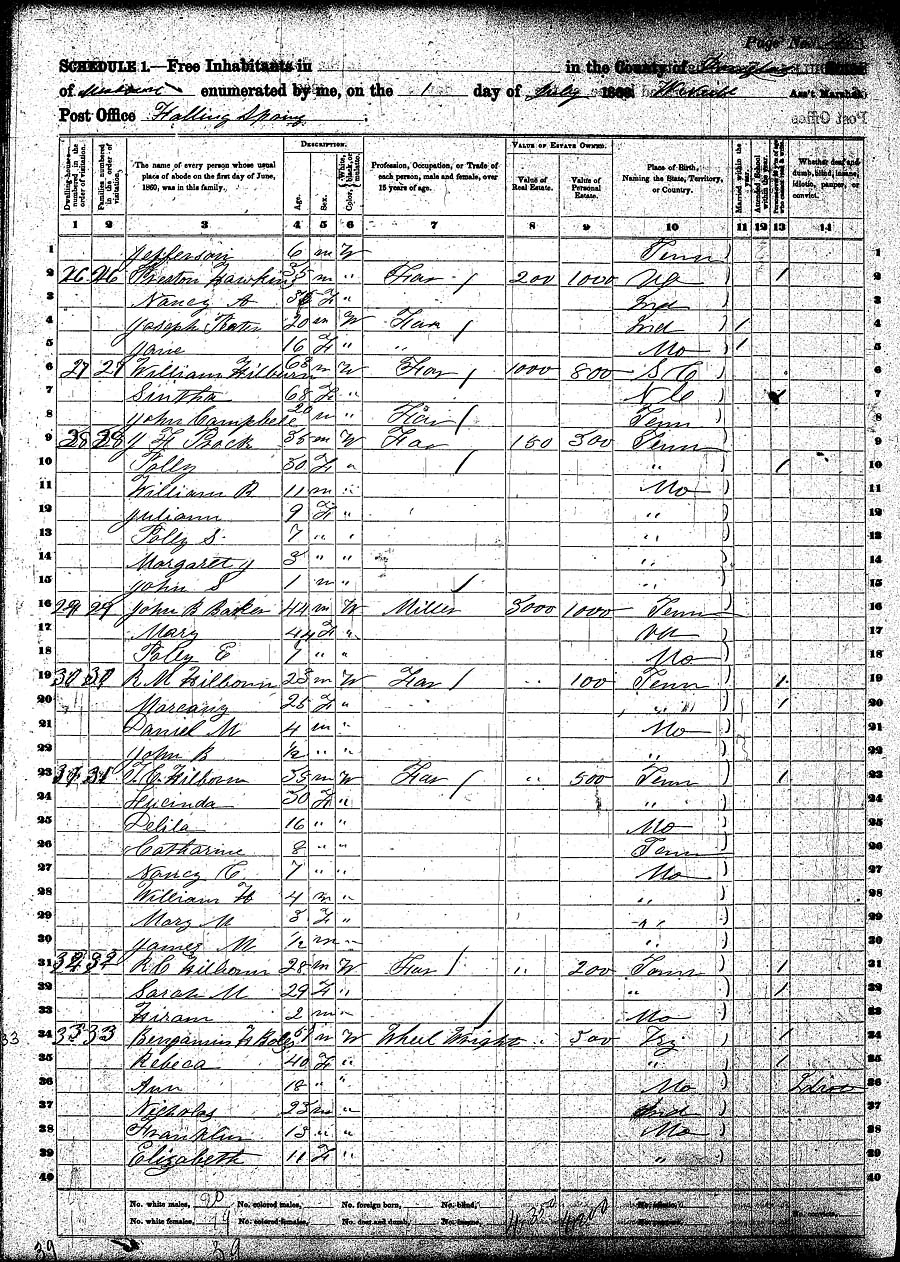 Page No.
SCHEDULE 1.—Free Inhabitants in in the County of
of enumerated by me, on the 1 day of July 1860. Ass't Marshal.
Post Office Falling Spring
DESCRIPTION. VALUE OF ESTATE OWNED.
Dwelling-houses numbered in the order of visitation. Families numbered in the order of visitation. The name of every person whose usual place of abode on the first day of June, 1860, was in this family. Age. Sex. Color, White, black, or mulatto. Profession, Occupation, or Trade of each person, male and female, over 15 years of age. Value of Real Estate. Value of Personal Estate. Place of Birth, Naming the State, Territory, or Country. Married within the year. Attended School within the year. Whether deaf and dumb, blind, insane, idiotic, pauper, or convict.
1 2 3 4 5 6 7 8 9 10 11 12 13 14
1 Jefferson 6 m W Tenn 1
2 26 26 Preston Hawkins 35 m " Far / 200 1000 Va / 2
3 Nancy A F " Ind 3
4 Joseph 20 m W Far / Ind / 4
5 Jane 16 F " " Mo / 5
6 27 27 William Hilburn 68 m W Far / 1000 800 S C 6
7 Sintha 68 F " N C 7
8 John Campbell 20 m " Far / Tenn 8
9 28 28 J H Brack 35 m W Far 150 300 Tenn 9
10 Polly 30 F " / " / 10
11 William R 11 m " Mo 11
12 Juliann 9 F " " 12
13 Polly S 7 " " " 13
14 Margaret J 3 " " " 14
15 John S 1 m " / " 15
16 29 29 John B Barker 44 m W Miller 3000 1000 Tenn 16
17 Mary 44 F " Va 17
18 Polly E 7 " " Mo 18
19 30 30 R M Hilbourn 23 m W Far / " 100 Tenn / 19
20 Mareany 25 F " " / 20
21 Daniel M 4 m " Mo 21
22 John R ½ " " " 22
23 31 31 T. C. Hilbourn 35 m W Far / " 500 Tenn / 23
24 Lucinda 30 F " " 24
25 Delila 16 " " Mo 25
26 Catharine 8 " " Tenn 26
27 Nancy C 7 " " Mo 27
28 William H 4 m " " 28
29 Mary M 3 F " " 29
30 James M ½ m " " 30
31 32 32 R C Hilbourn 28 m W Far / " 200 Tenn / 31
32 Sarah M 29 F " " / 32
33 Hiram 2 m " / Mo 33
34 33 33 Benjamin F m W Wheel Wright " 500 Ky / 34
35 Rebeca 40 F " " / 35
36 Ann 18 " " Mo Idiot 36
37 Nicholas 23 m " Ind 37
38 Franklin 13 " " Mo 38
39 Elizabeth 11 F " " 39
40 40
No. white males, No. colored males, No. foreign born, No. blind,
No. white females, No. colored females, No. deaf and dumb, No. insane, 4350
39 39